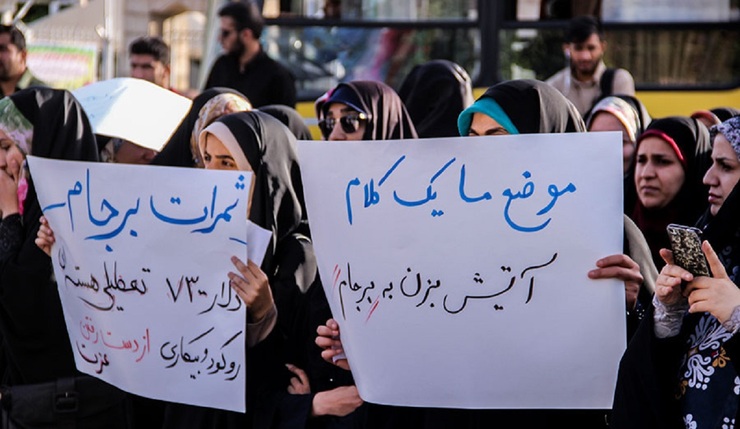 ثمرات برجام
دلار ۷۳۰۰ تعطیلی هسته ای
رکود و بیکاری از دست رفتن
عزت
موضع ما یک کلام
آتیش بزن به برجام